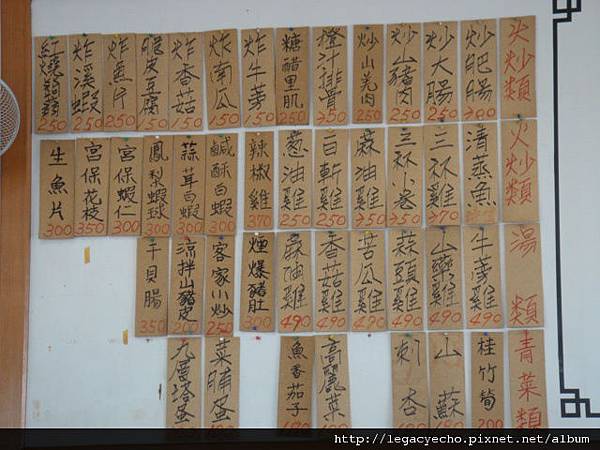 火炒類
炒肥腸
炒大腸 250
炒山豬肉 250
炒山羌肉 250
橙汁排骨 350
糖醋里肌 250
炸牛蒡 150
炸南瓜 150
炸香菇 150
脆皮豆腐 150
炸魚片 250
炸溪蝦 250
紅燒 250
火炒類
清蒸魚
三杯雞 370
三杯小卷 350
麻油雞 350
白斬雞 250
蔥油雞 250
辣椒雞 370
鹹酥白蝦 300
蒜茸白蝦 300
鳳梨蝦球 300
宮保蝦仁 300
宮保花枝 350
生魚片 300
湯類
牛蒡雞 490
山藥雞 490
蒜頭雞 490
苦瓜雞 490
香菇雞 490
麻油雞 490
煙爆豬肚
客家小炒 250
涼拌山豬皮 200
干貝腸 350
青菜類
桂竹筍 200
山蘇 180
刺杏
高麗菜
魚香茄子
菜脯蛋
九層塔蛋
http://legacyecho.pixnet.net/album